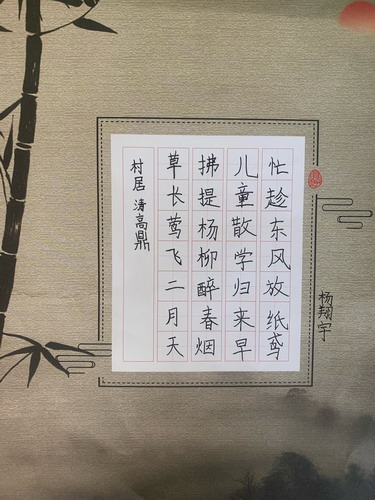 村居 清高鼎
草长莺飞二月天
拂提杨柳醉春烟
儿童散学归来早
忙趁东风放纸鸢
杨翔宇